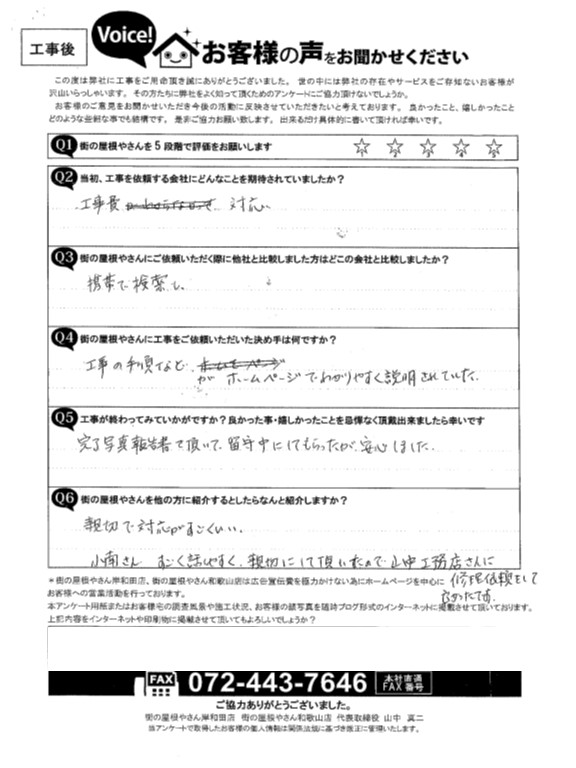 工事後
Voice!
お客様の声をお聞かせください
この度は弊社に工事をご用命頂き誠にありがとうございました。 世の中には弊社の存在やサービスをご存知ないお客様が
沢山いらっしゃいます。 その方たちに弊社をよく知って頂くためのアンケートにご協力頂けないでしょうか。
お客様のご意見をお聞かせいただき今後の活動に反映させていただきたいと考えております。 良かったこと、嬉しかったこと
どのような些細な事でも結構です。 是非ご協力お願い致します。 出来るだけ具体的に書いて頂ければ幸いです。
Q1 街の屋根やさんを5段階で評価をお願いします ☆1 ☆2 ☆3 ☆4 ☆5
Q2 当初、工事を依頼する会社にどんなことを期待されていましたか?
工事費 対応
Q3 街の屋根やさんにご依頼いただく際に他社と比較しました方はどこの会社と比較しましたか?
携帯で検索し、
Q4 街の屋根やさんに工事をご依頼いただいた決め手は何ですか?
工事の手順など、ホームページ
が ホームページでわかりやすく説明されていた。
Q5 工事が終わってみていかがですか?良かった事・嬉しかったことを忌憚なく頂戴出来ましたら幸いです
完了写真報告書て頂いて、留守中にしてもらったが、安心しました。
Q6 街の屋根やさんを他の方に紹介するとしたらなんと紹介しますか?
親切で対応がすごくいい。
小南さん すごく話しやすく、親切にして頂いたので山中工務店さんに
修理依頼をして
良かったです。
*街の屋根やさん岸和田店、街の屋根やさん和歌山店は広告宣伝費を極力かけない為にホームページを中心に
お客様への営業活動を行っております。
本アンケート用紙またはお客様宅の調査風景や施工状況、お客様の顔写真を随時ブログ形式のインターネットに掲載させて頂いております。
上記内容をインターネットや印刷物に掲載させて頂いてもよろしいでしょうか?
FAX 072-443-7646 本社直通 FAX番号
ご協力ありがとうございました。
街の屋根やさん岸和田店 街の屋根やさん和歌山店 代表取締役 山中 真二
当アンケートで取得したお客様の個人情報は関係法規に基づき厳正に管理いたします。